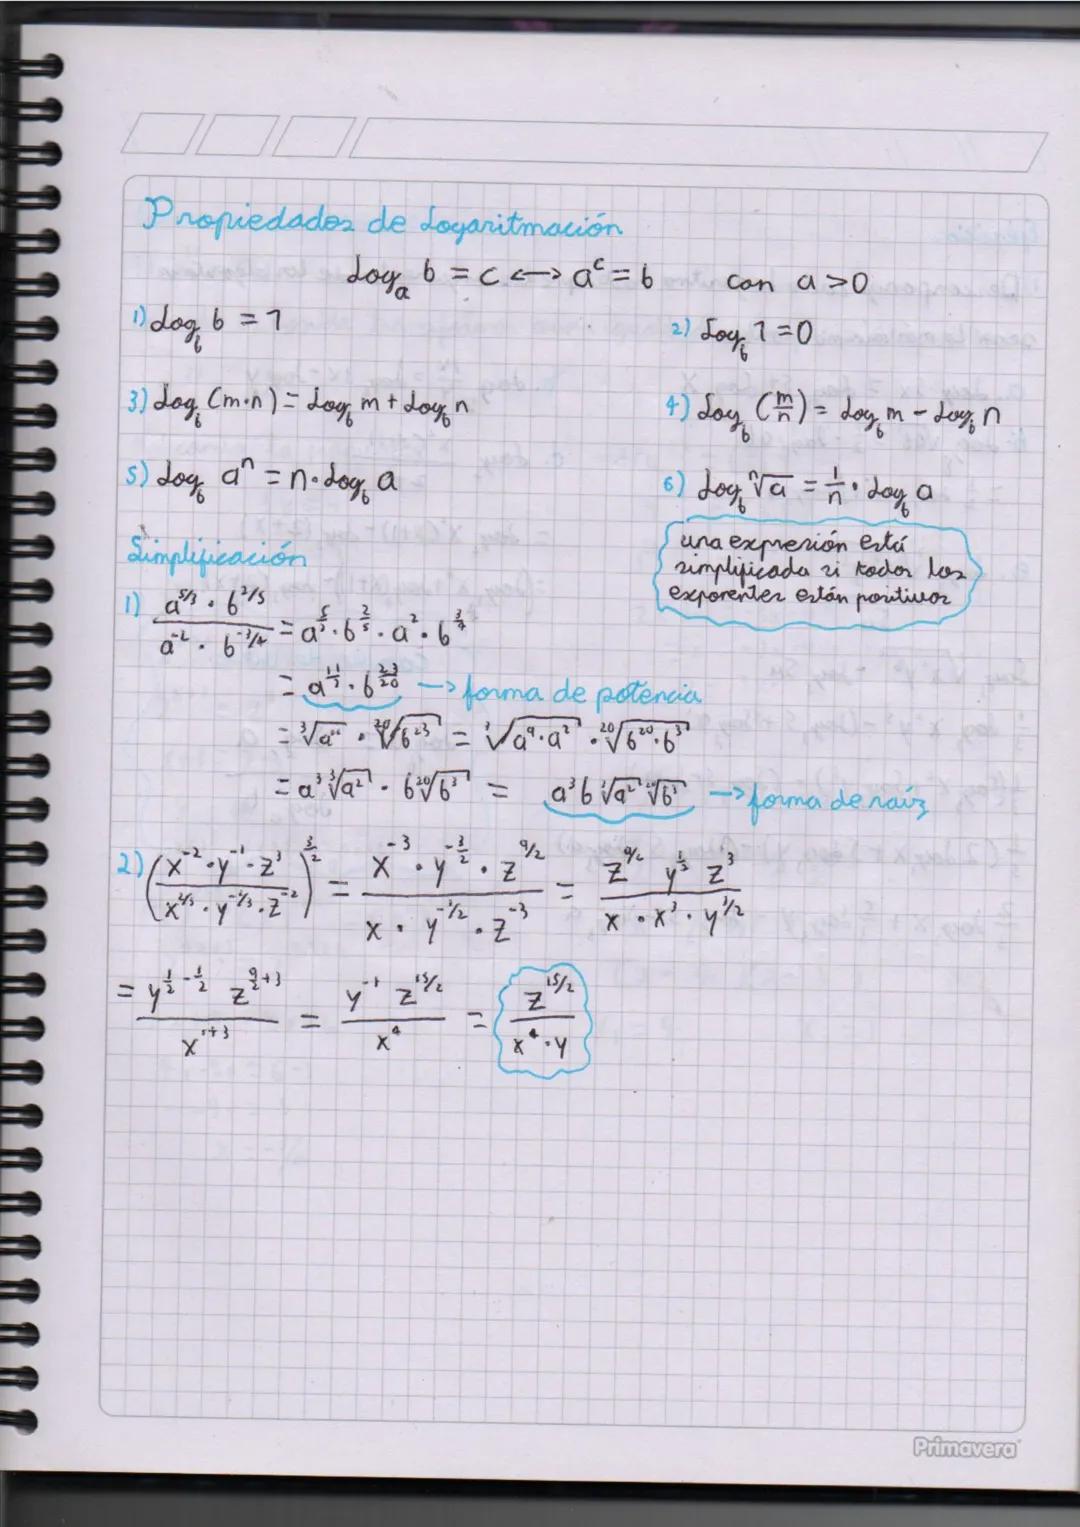 Propiedades de Logaritmación
Log_a b = c ⟷ a^c = b con a > 0
1) Log_b b = 1 2) Log_b 1 = 0
3) Log_b (m·n) = Log_b m + Log_b n 4) Log_b (m/n) = Log_b m - Log_b n
5) Log_b a^n = n·Log_b a 6) Log_b ⁿ√a = 1/n · Log_b a
una expresión está
simplificada si todos los
exponentes están positivos
Simplificación
1) (a^(5/3) · b^(2/5)) / (a^(-2) · b^(-3/4)) = a^(5/3) · b^(2/5) · a^2 · b^(3/4)
= a^(11/3) · b^(23/20) → forma de potencia
= ³√a^11 · ²⁰√b^23 = ³√(a^9·a^2) · ²⁰√(b^20·b^3)
= a^3 ³√a^2 · b ²⁰√b^3 = a^3 b ³√a^2 ²⁰√b^3 → forma de raíz
2) ((x^(-2) · y^(-1) · z^3) / (x^(2/3) · y^(-1/3) · z^(-2)))^(3/2) = (x^(-3) · y^(-3/2) · z^(9/2)) / (x · y^(-1/2) · z^(-3)) = (z^(9/2) y^(1/2) z^3) / (x · x^3 · y^(3/2))
= (y^(1/2 - 3/2) z^(9/2+3)) / x^(1+3) = (y^(-1) z^(15/2)) / x^4 = z^(15/2) / (x^4 · y)
Primavera